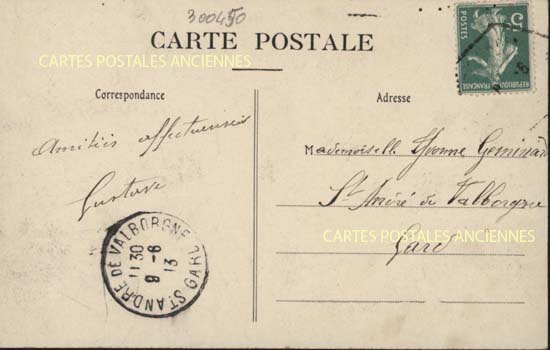 300450
CARTE POSTALE
CARTES POSTALES ANCIENNES
Correspondance
Adresse
Amitiés affectueuses
Gustave
Mademoiselle Yvonne
St André de Valborgne
CARTES POSTALES ANCIENNES
Gard
5c
POSTES
RÉPUBLIQUE FRANÇAISE
ST ANDRE DE VALBORGNE
GARD
11 30
9 -6
13